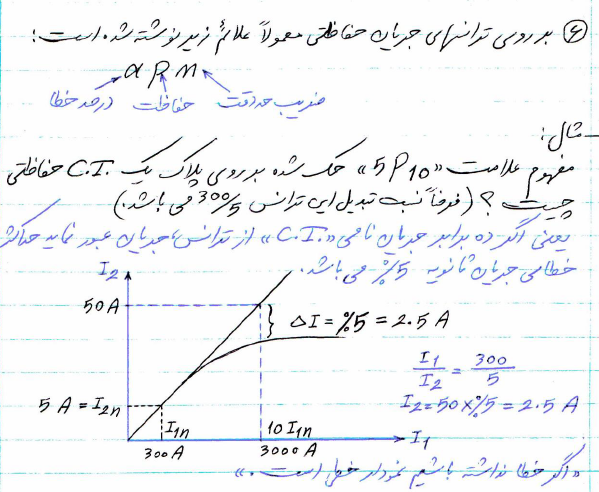 ⑥ بر روی ترانسهای جریان حفاظتی معمولاً علائم زیر نوشته شده است:
α P n
درصد خطا حفاظت ضریب حد دقت
مثال:
مفهوم علامت «5P10» حک شده بر روی پلاک یک C.T. حفاظتی
چیست؟ (فرضاً نسبت تبدیل این ترانس 300/5 می باشد.)
یعنی اگر ده برابر جریان نامی «C.T.» از ترانس جریان عبور نماید حداکثر
خطای جریان ثانویه 5% می باشد.
I2
50A
ΔI = %5 = 2.5 A
I1/I2 = 300/5
I2 = 50 × %5 = 2.5 A
5 A = I2n
I1n
10 I1n
I1
300 A
3000 A
«اگر خطا نداشته باشیم نمودار خطی است.»